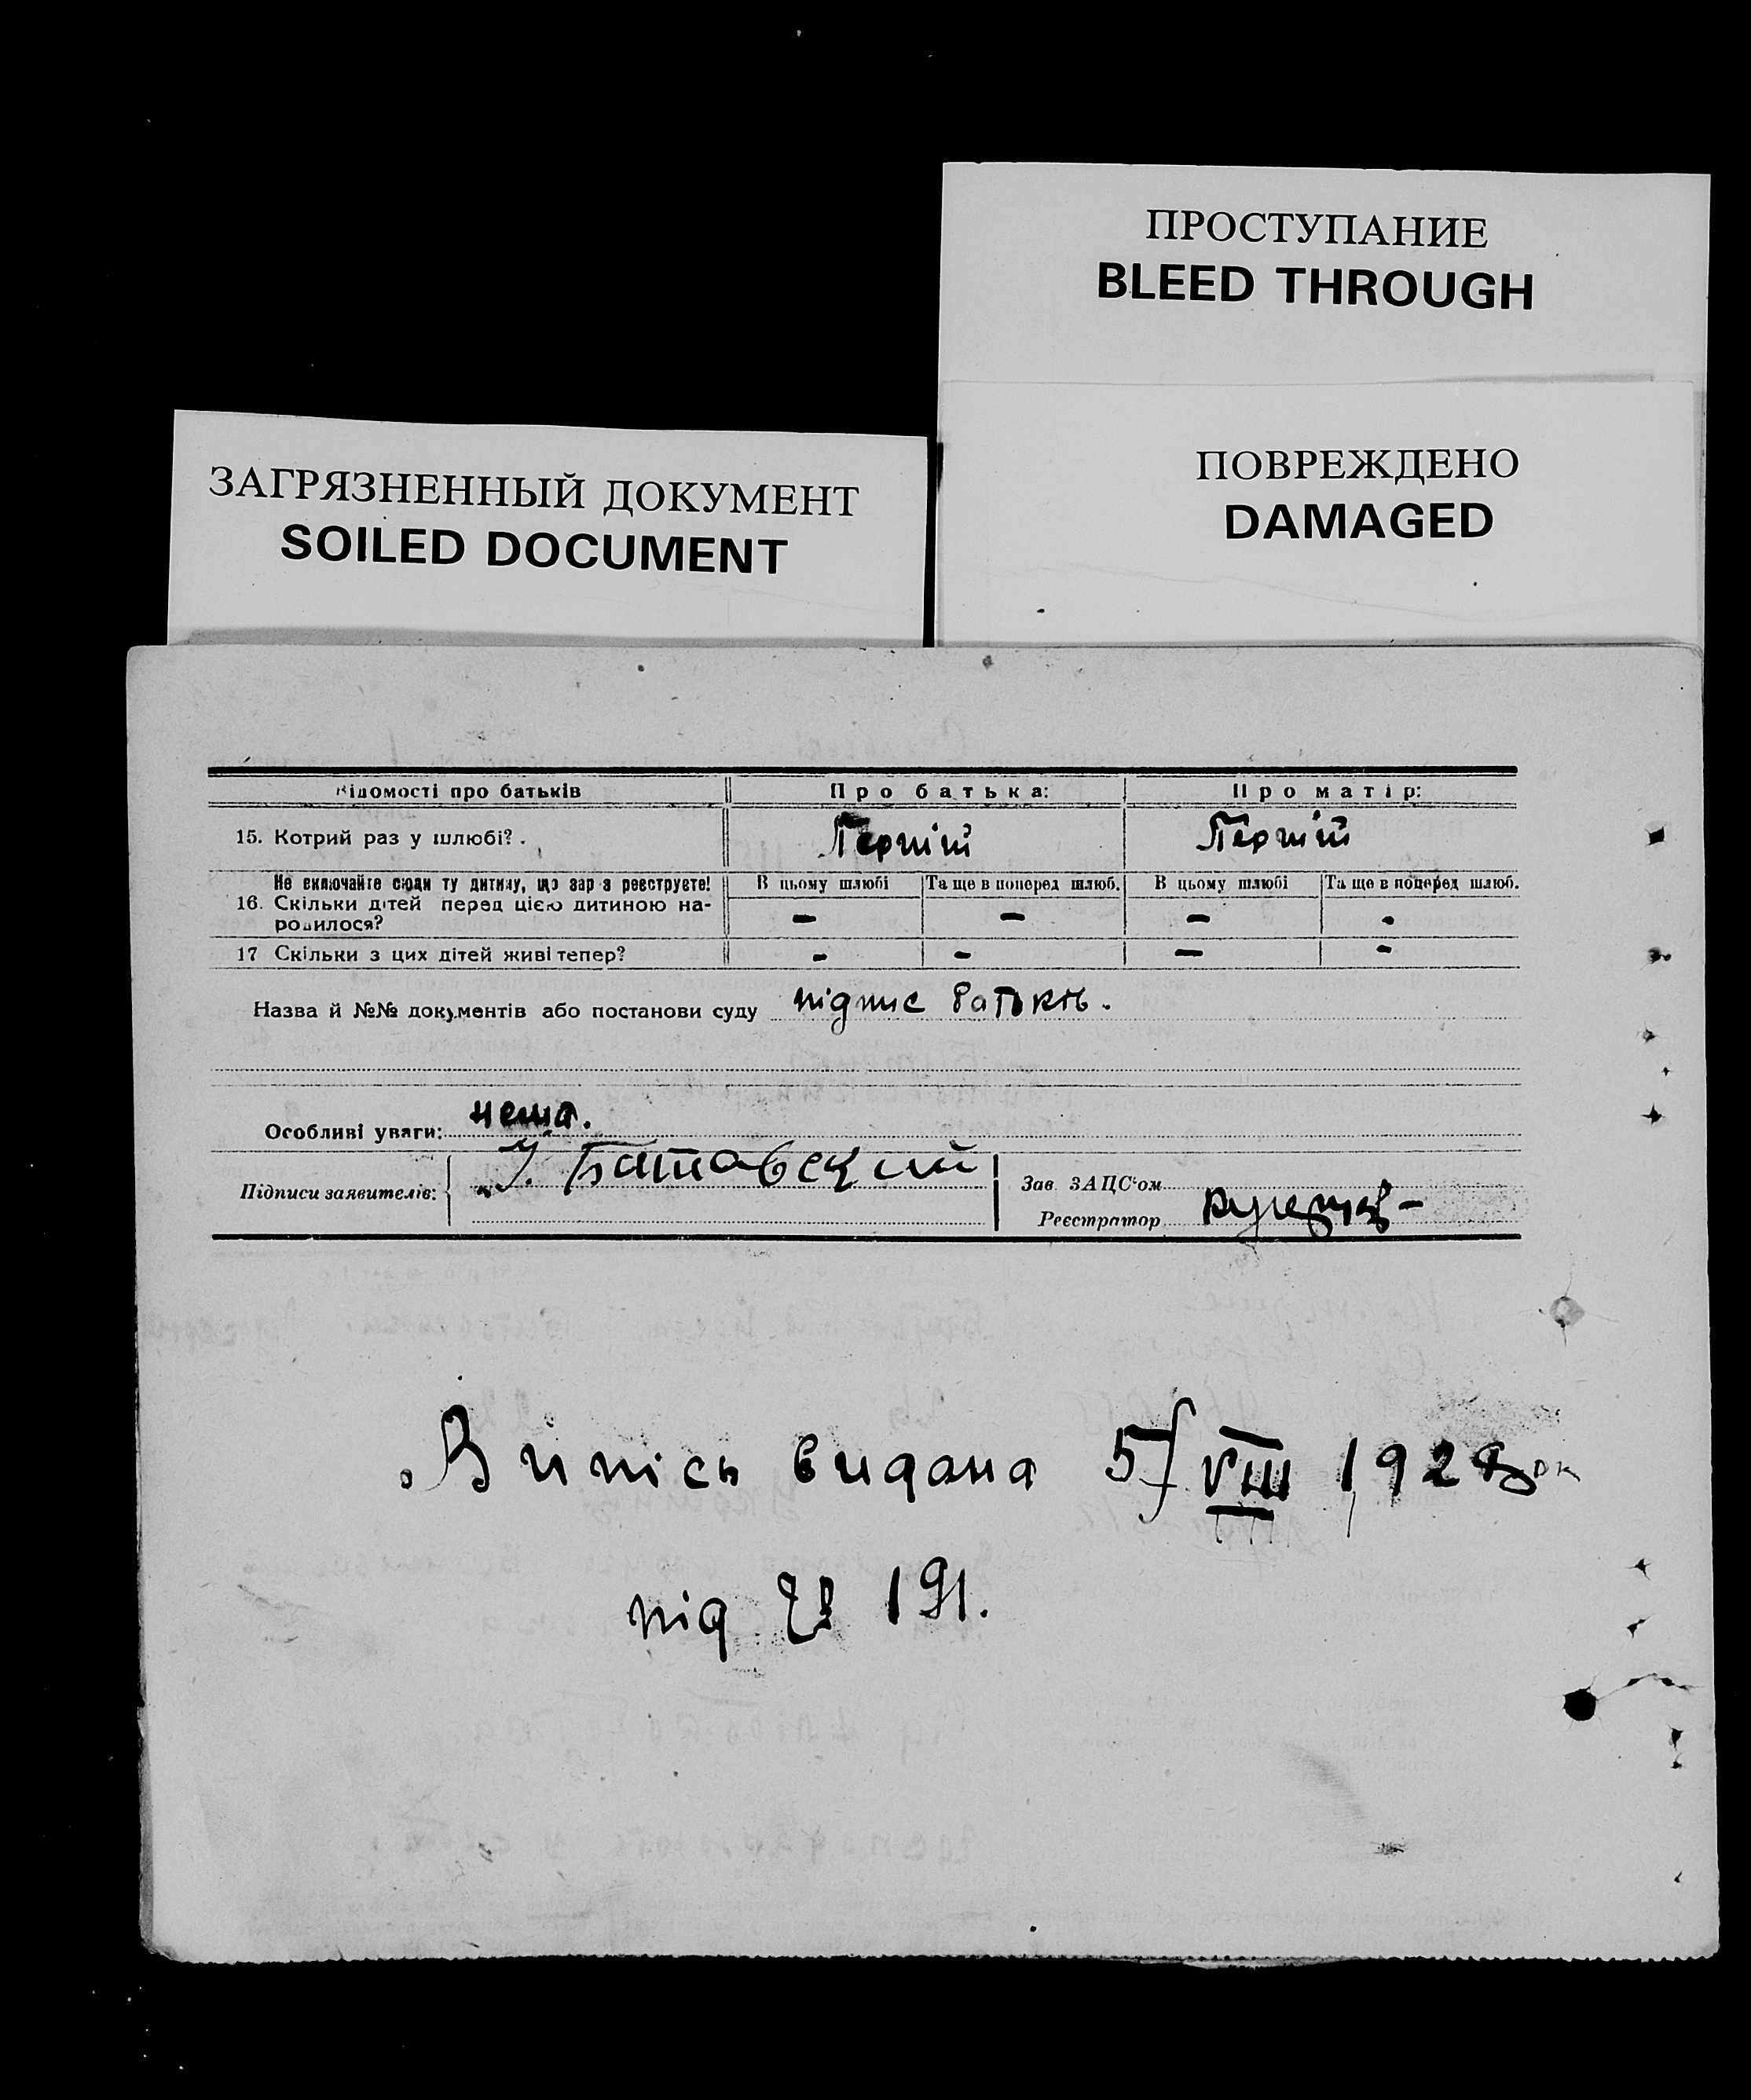 ПРОСТУПАНИЕ
BLEED THROUGH
ПОВРЕЖДЕНО
DAMAGED
ЗАГРЯЗНЕННЫЙ ДОКУМЕНТ
SOILED DOCUMENT
Відомості про батьків Про батька: Про матір:
15. Котрий раз у шлюбі? . Перший Перший
Не включайте сюди ту дитину, що зараз реєструєте! В цьому шлюбі Та ще в поперед шлюб. В цьому шлюбі Та ще в поперед шлюб.
16. Скільки дітей перед цією дитиною на-
родилося? — — — -
17 Скільки з цих дітей живі тепер? - - — -
Назва й №№ документів або постанови суду підпис батьків.
Особливі уваги: нема.
Підписи заявителів: Батовський Зав. ЗАЦС'ом
Реєстратор
Випісь видана 5/VIII 192
під № 191.